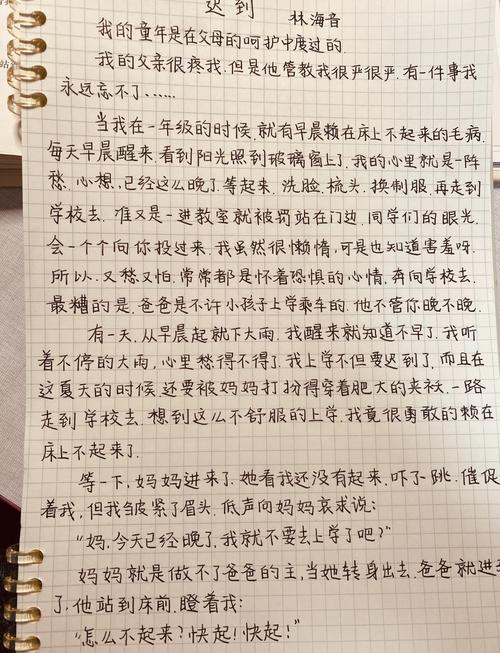 迟到
林海音
我的童年是在父母的呵护中度过的.
我的父亲很疼我.但是他管教我很严很严.有一件事我
永远忘不了……
当我在一年级的时候.就有早晨赖在床上不起来的毛病.
每天早晨醒来.看到阳光照到玻璃窗上了.我的心里就是一阵
愁.心想,已经这么晚了.等起来.洗脸.梳头.换制服.再走到
学校去.准又是一进教室就被罚站在门边.同学们的眼光.
会一个个向你投过来.我虽然很懒惰.可是也知道害羞呀.
所以.又愁又怕.常常都是怀着恐惧的心情.奔向学校去.
最糟的是.爸爸是不许小孩子上学乘车的.他不管你晚不晚.
有一天.从早晨起就下大雨.我醒来就知道不早了.我听
着不停的大雨,心里愁得不得了.我上学不但要迟到了.而且在
这夏天的时候.还要被妈妈打扮得穿着肥大的夹袄.一路
走到学校去.想到这么不舒服的上学.我竟很勇敢的赖在
床上不起来了.
等一下,妈妈进来了.她看我还没有起来.吓了一跳.催促
着我,但我皱紧了眉头.低声向妈妈哀求说:
“妈,今天已经晚了.我就不要去上学了吧?”
妈妈就是做不了爸爸的主,当她转身出去.爸爸就进到
了.他站到床前.瞪着我:
“怎么不起来?快起!快起!”